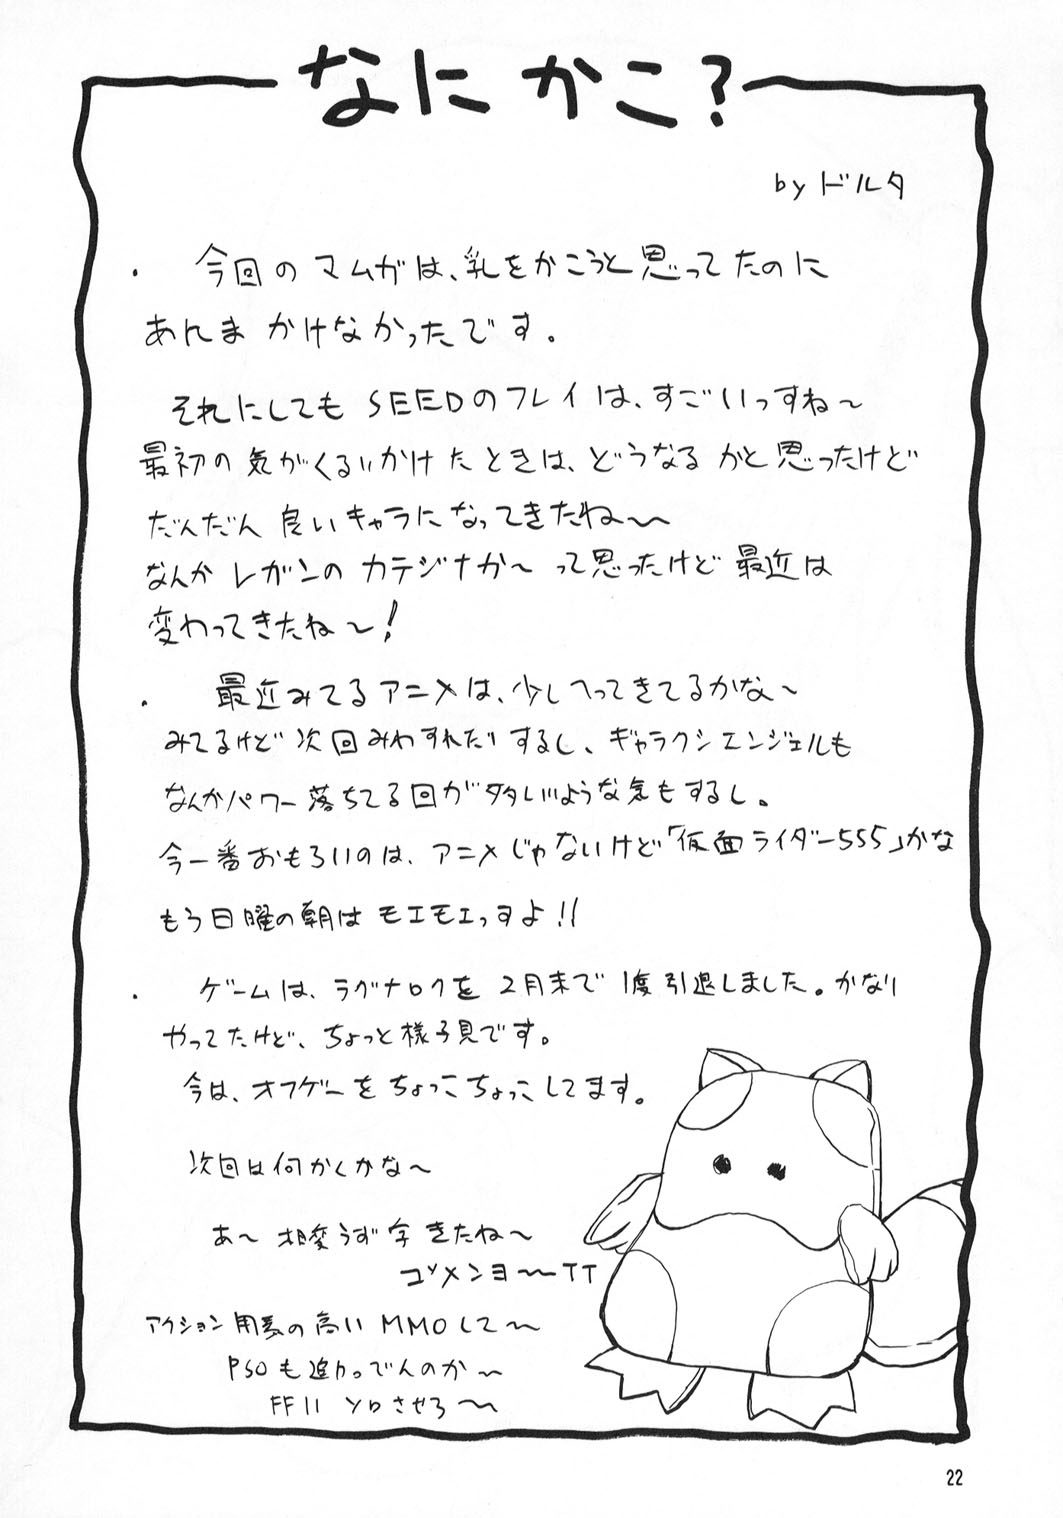 なに かこ？
by ドルタ
・ 今回のマムガは、乳をかこうと思ってたのに
あんま かけなかったです。
それにしても SEEDのフレイは、すごいっすね～
最初の気がくるいかけたときは、どうなるかと思ったけど
だんだん 良いキャラになってきたね～
なんか レガンの カテジナか～ って思ったけど 最近は
変わってきたね～！
・ 最近みてるアニメは、少しへってきてるかな～
みてるけど 次回みわすれたりするし、ギャラクシエンジェルも
なんかパワー落ちてる回が多いような気もするし。
今一番おもろいのは、アニメじゃないけど「仮面ライダー555」かな
もう日曜の朝は モエモエっすよ！！
・ ゲームは、ラグナロクを 2月末で 1度引退しました。かなり
やってたけど、ちょっと様子見です。
今は、オフゲーをちょっこちょっこしてます。
次回は何かくかな～
あ～ 相変うず字 きたね～
ゴメンヨ～TT
アクション用素の高い MMOして～
PSOも追加っでんのか～
FF11 ソロさせろ～
22